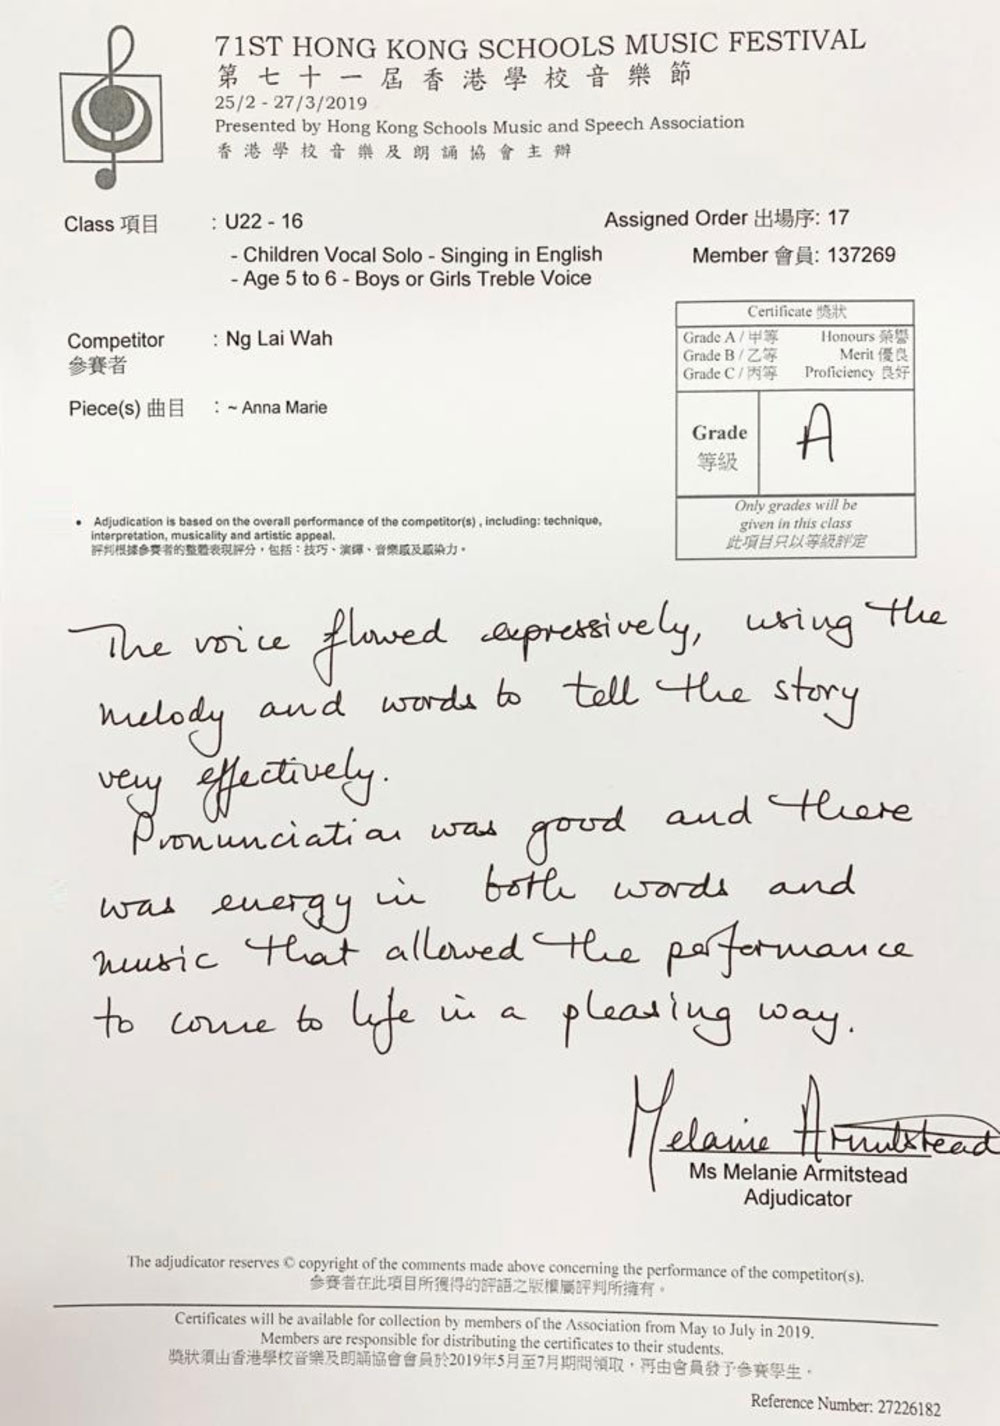 71ST HONG KONG SCHOOLS MUSIC FESTIVAL
第七十一屆香港學校音樂節
25/2 - 27/3/2019
Presented by Hong Kong Schools Music and Speech Association
香港學校音樂及朗誦協會主辦
Class 項目 : U22 - 16
Assigned Order 出場序: 17
- Children Vocal Solo - Singing in English
Member 會員: 137269
- Age 5 to 6 - Boys or Girls Treble Voice
Certificate 獎狀
Grade A / 甲等 Honours 榮譽
Grade B / 乙等 Merit 優良
Grade C / 丙等 Proficiency 良好
Competitor : Ng Lai Wah
參賽者
Piece(s) 曲目 : ~ Anna Marie
Grade A
等級
Only grades will be
given in this class
此項目只以等級評定
• Adjudication is based on the overall performance of the competitor(s) , including: technique,
interpretation, musicality and artistic appeal.
評判根據參賽者的整體表現評分，包括：技巧、演繹、音樂感及感染力。
The voice flowed expressively, using the
melody and words to tell the story
very effectively.
Pronunciation was good and there
was energy in both words and
music that allowed the performance
to come to life in a pleasing way.
Melanie Armitstead
Ms Melanie Armitstead
Adjudicator
The adjudicator reserves © copyright of the comments made above concerning the performance of the competitor(s).
參賽者在此項目所獲得的評語之版權屬評判所擁有。
Certificates will be available for collection by members of the Association from May to July in 2019.
Members are responsible for distributing the certificates to their students.
獎狀須由香港學校音樂及朗誦協會會員於2019年5月至7月期間領取，再由會員發予參賽學生。
Reference Number: 27226182